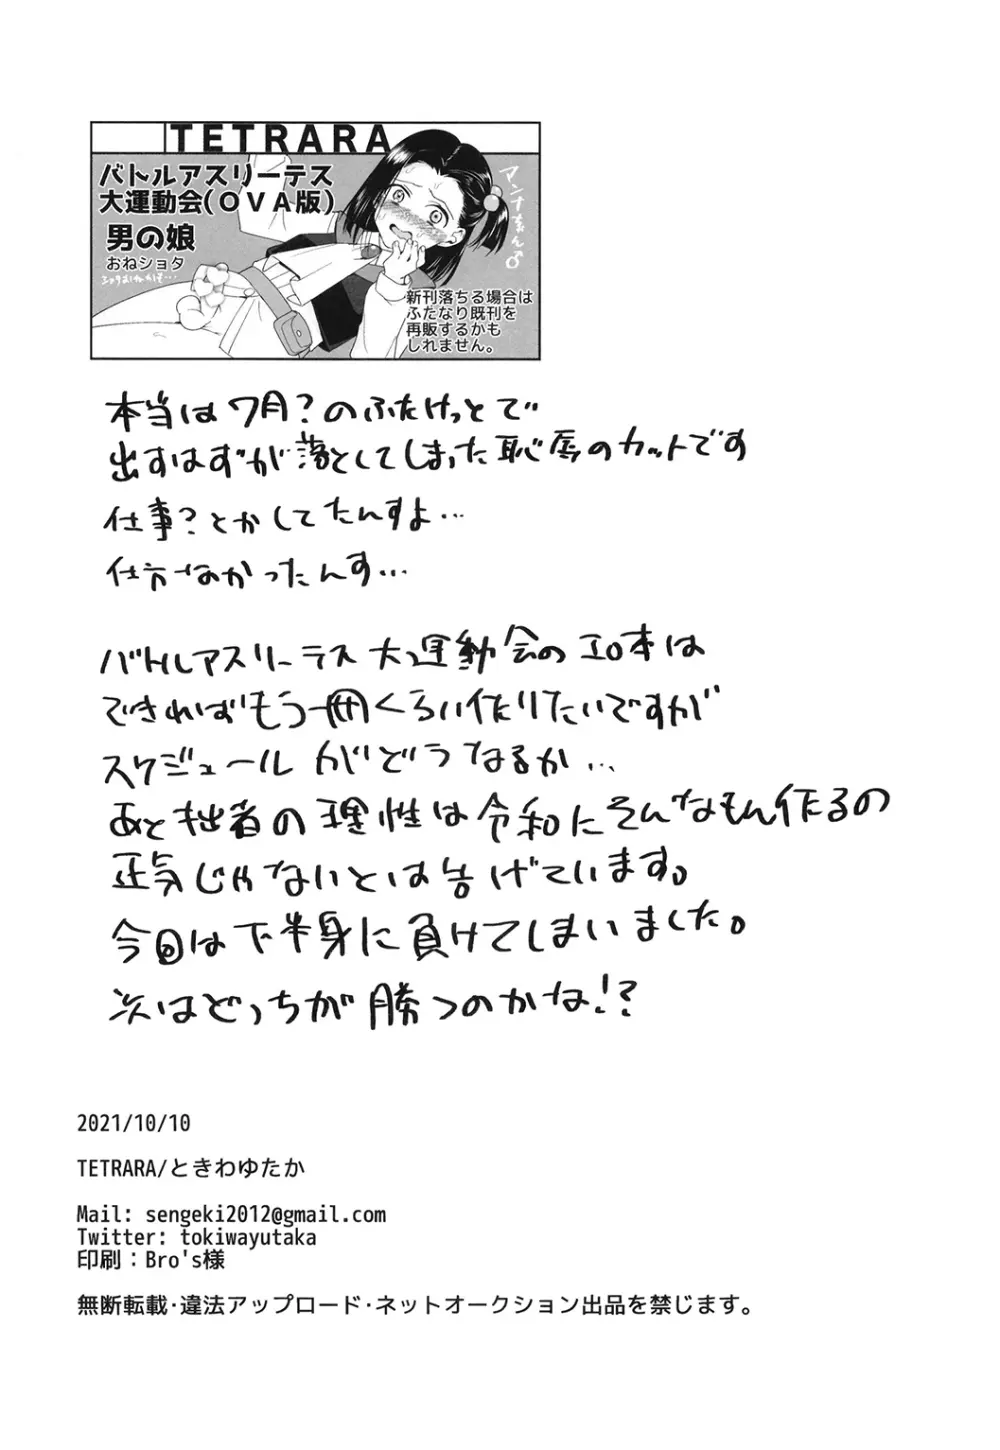 TETRARA
バトルアスリーテス
大運動会(OVA版)
男の娘
おねショタ
アンナちゃん♂
新刊落ちる場合は
ふたなり既刊を
再販するかも
しれません。
本当は7月?のふたけっとで
出すはずが落としてしまった恥辱のカットです
仕事?とかしてたんすよ…
仕方なかったんす…
バトルアスリーテス大運動会のエロ本は
できればもう一冊くらい作りたいですが
スケジュールがどうなるか…
あと拙者の理性は令和にそんなもん作るの
正気じゃないとは告げています。
今回は下半身に負けてしまいました。
次はどっちが勝つのかな!?
2021/10/10
TETRARA/ときわゆたか
Mail: sengeki2012@gmail.com
Twitter: tokiwayutaka
印刷：Bro's様
無断転載・違法アップロード・ネットオークション出品を禁じます。